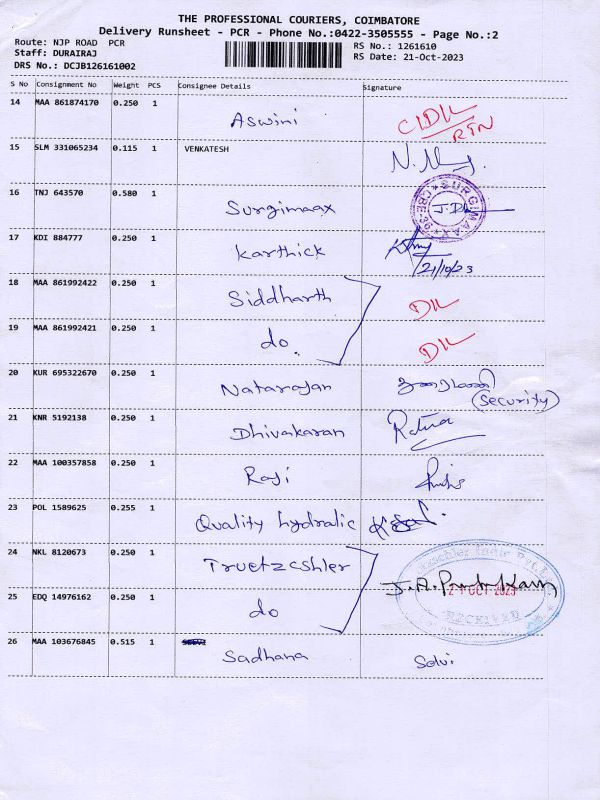 THE PROFESSIONAL COURIERS, COIMBATORE
Delivery Runsheet - PCR - Phone No.:0422-3505555 - Page No.:2
Route: NJP ROAD PCR
RS No.: 1261610
Staff: DURAIRAJ
RS Date: 21-Oct-2023
DRS No.: DCJB126161002
S No Consignment No Weight PCS Consignee Details Signature
14 MAA 861874170 0.250 1 Aswini
RTN
15 SLM 331065234 0.115 1 VENKATESH
16 TNJ 643570 0.580 1 Surgimaax SURGIMAAX
17 KDI 884777 0.250 1 Karthick
21/10/23
18 MAA 861992422 0.250 1 Siddharth DIL
19 MAA 861992421 0.250 1 do. DIL
20 KUR 695322670 0.250 1 Natarajan
(Security)
21 KNR 5192138 0.250 1 Dhivakaran Ratna
22 MAA 100357858 0.250 1 Raji
23 POL 1589625 0.255 1 Quality hydralic
24 NKL 8120673 0.250 1 Truetzcshler
21 OCT 2023
25 EDQ 14976162 0.250 1 do RECEIVED
26 MAA 103676845 0.515 1 Sadhana Selvi